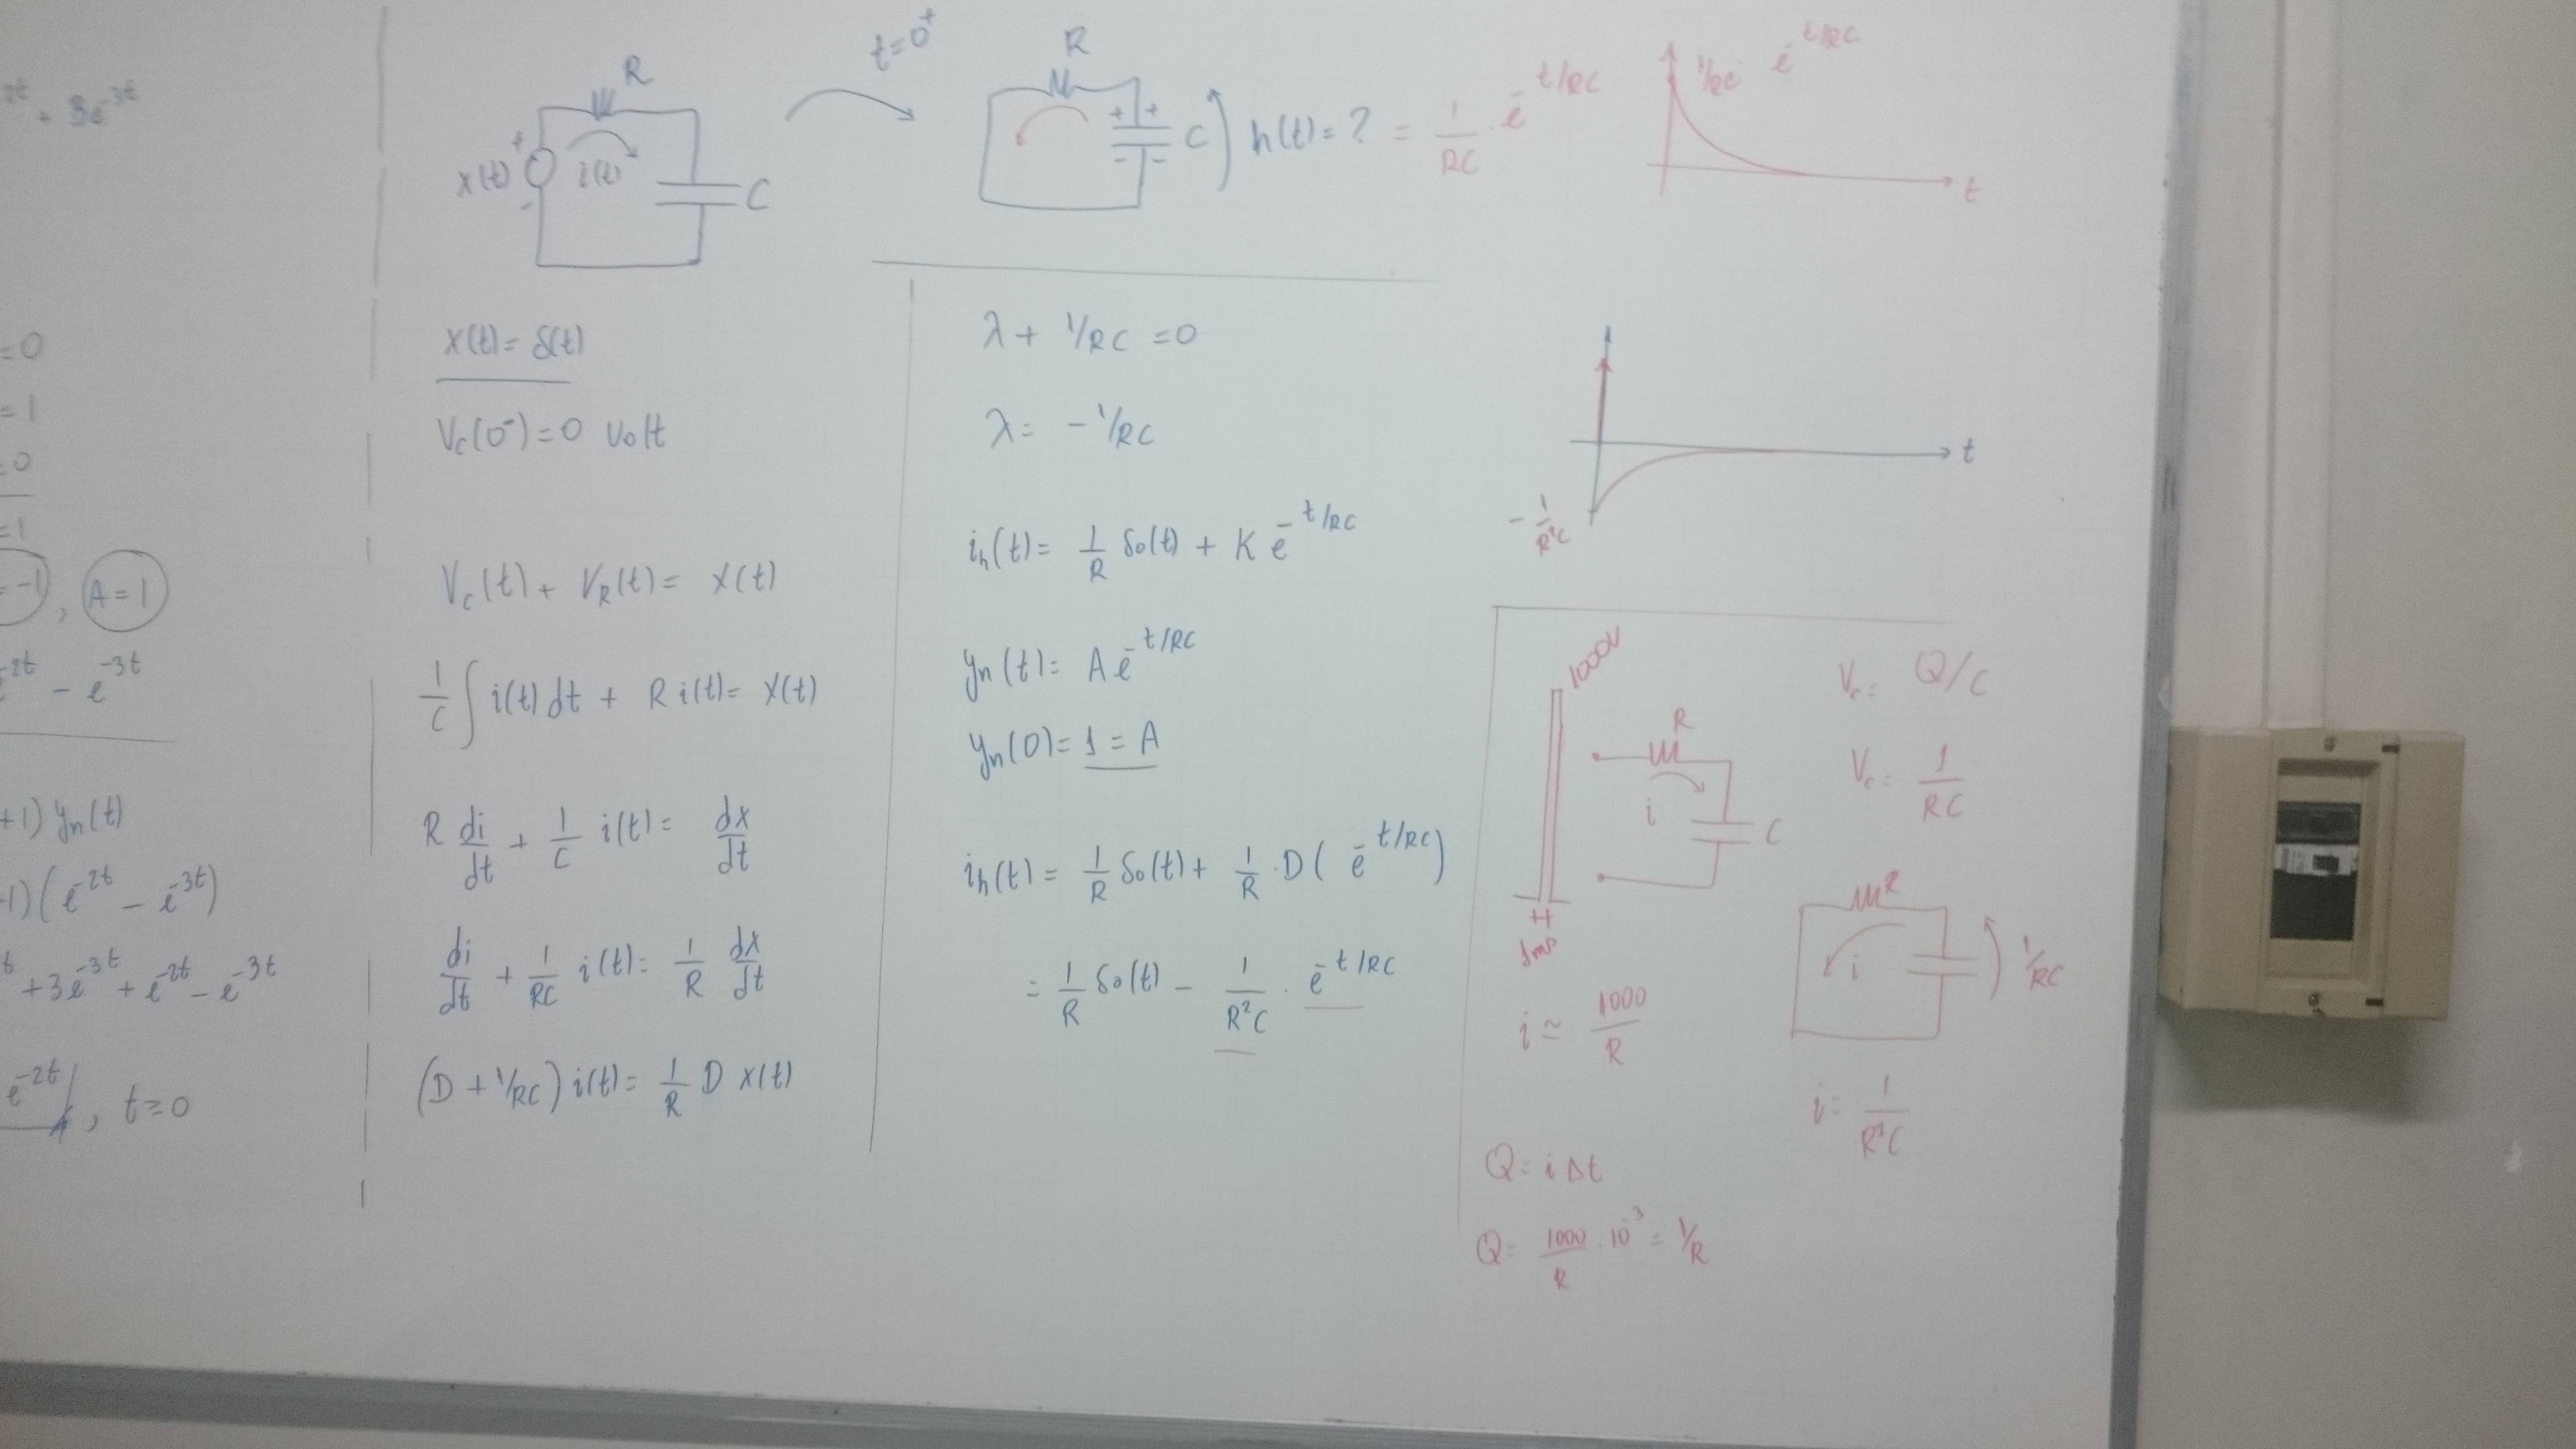 + 3e^-3t
=0
=1
=0
=1
=-1, A=1
e^-2t - e^-3t
+1) yn(t)
+1)(e^-2t - e^-3t)
+3e^-3t + e^-2t - e^-3t
e^-2t, t≥0
R
x(t) + -
i(t)
C
t=0⁺
R
+ +
- -
C
h(t)=? = 1/RC · e^-t/RC
1/RC e^-t/RC
t
x(t)= δ(t)
Vc(0⁻)=0 volt
Vc(t) + VR(t)= x(t)
1/C ∫ i(t) dt + R i(t)= x(t)
R di/dt + 1/C i(t)= dx/dt
di/dt + 1/RC i(t)= 1/R dx/dt
(D + 1/RC) i(t)= 1/R D x(t)
λ + 1/RC =0
λ= - 1/RC
ih(t)= 1/R δo(t) + K e^-t/RC
yn(t)= A e^-t/RC
yn(0)= 1 = A
ih(t)= 1/R δo(t) + 1/R · D( e^-t/RC)
= 1/R δo(t) - 1/R²C · e^-t/RC
t
- 1/R²C
1000V
R
i
C
1ms
i ≃ 1000/R
Q= i Δt
Q= 1000/R · 10^-3 = 1/R
Vc= Q/C
Vc= 1/RC
R
i
1/RC
i= 1/R²C